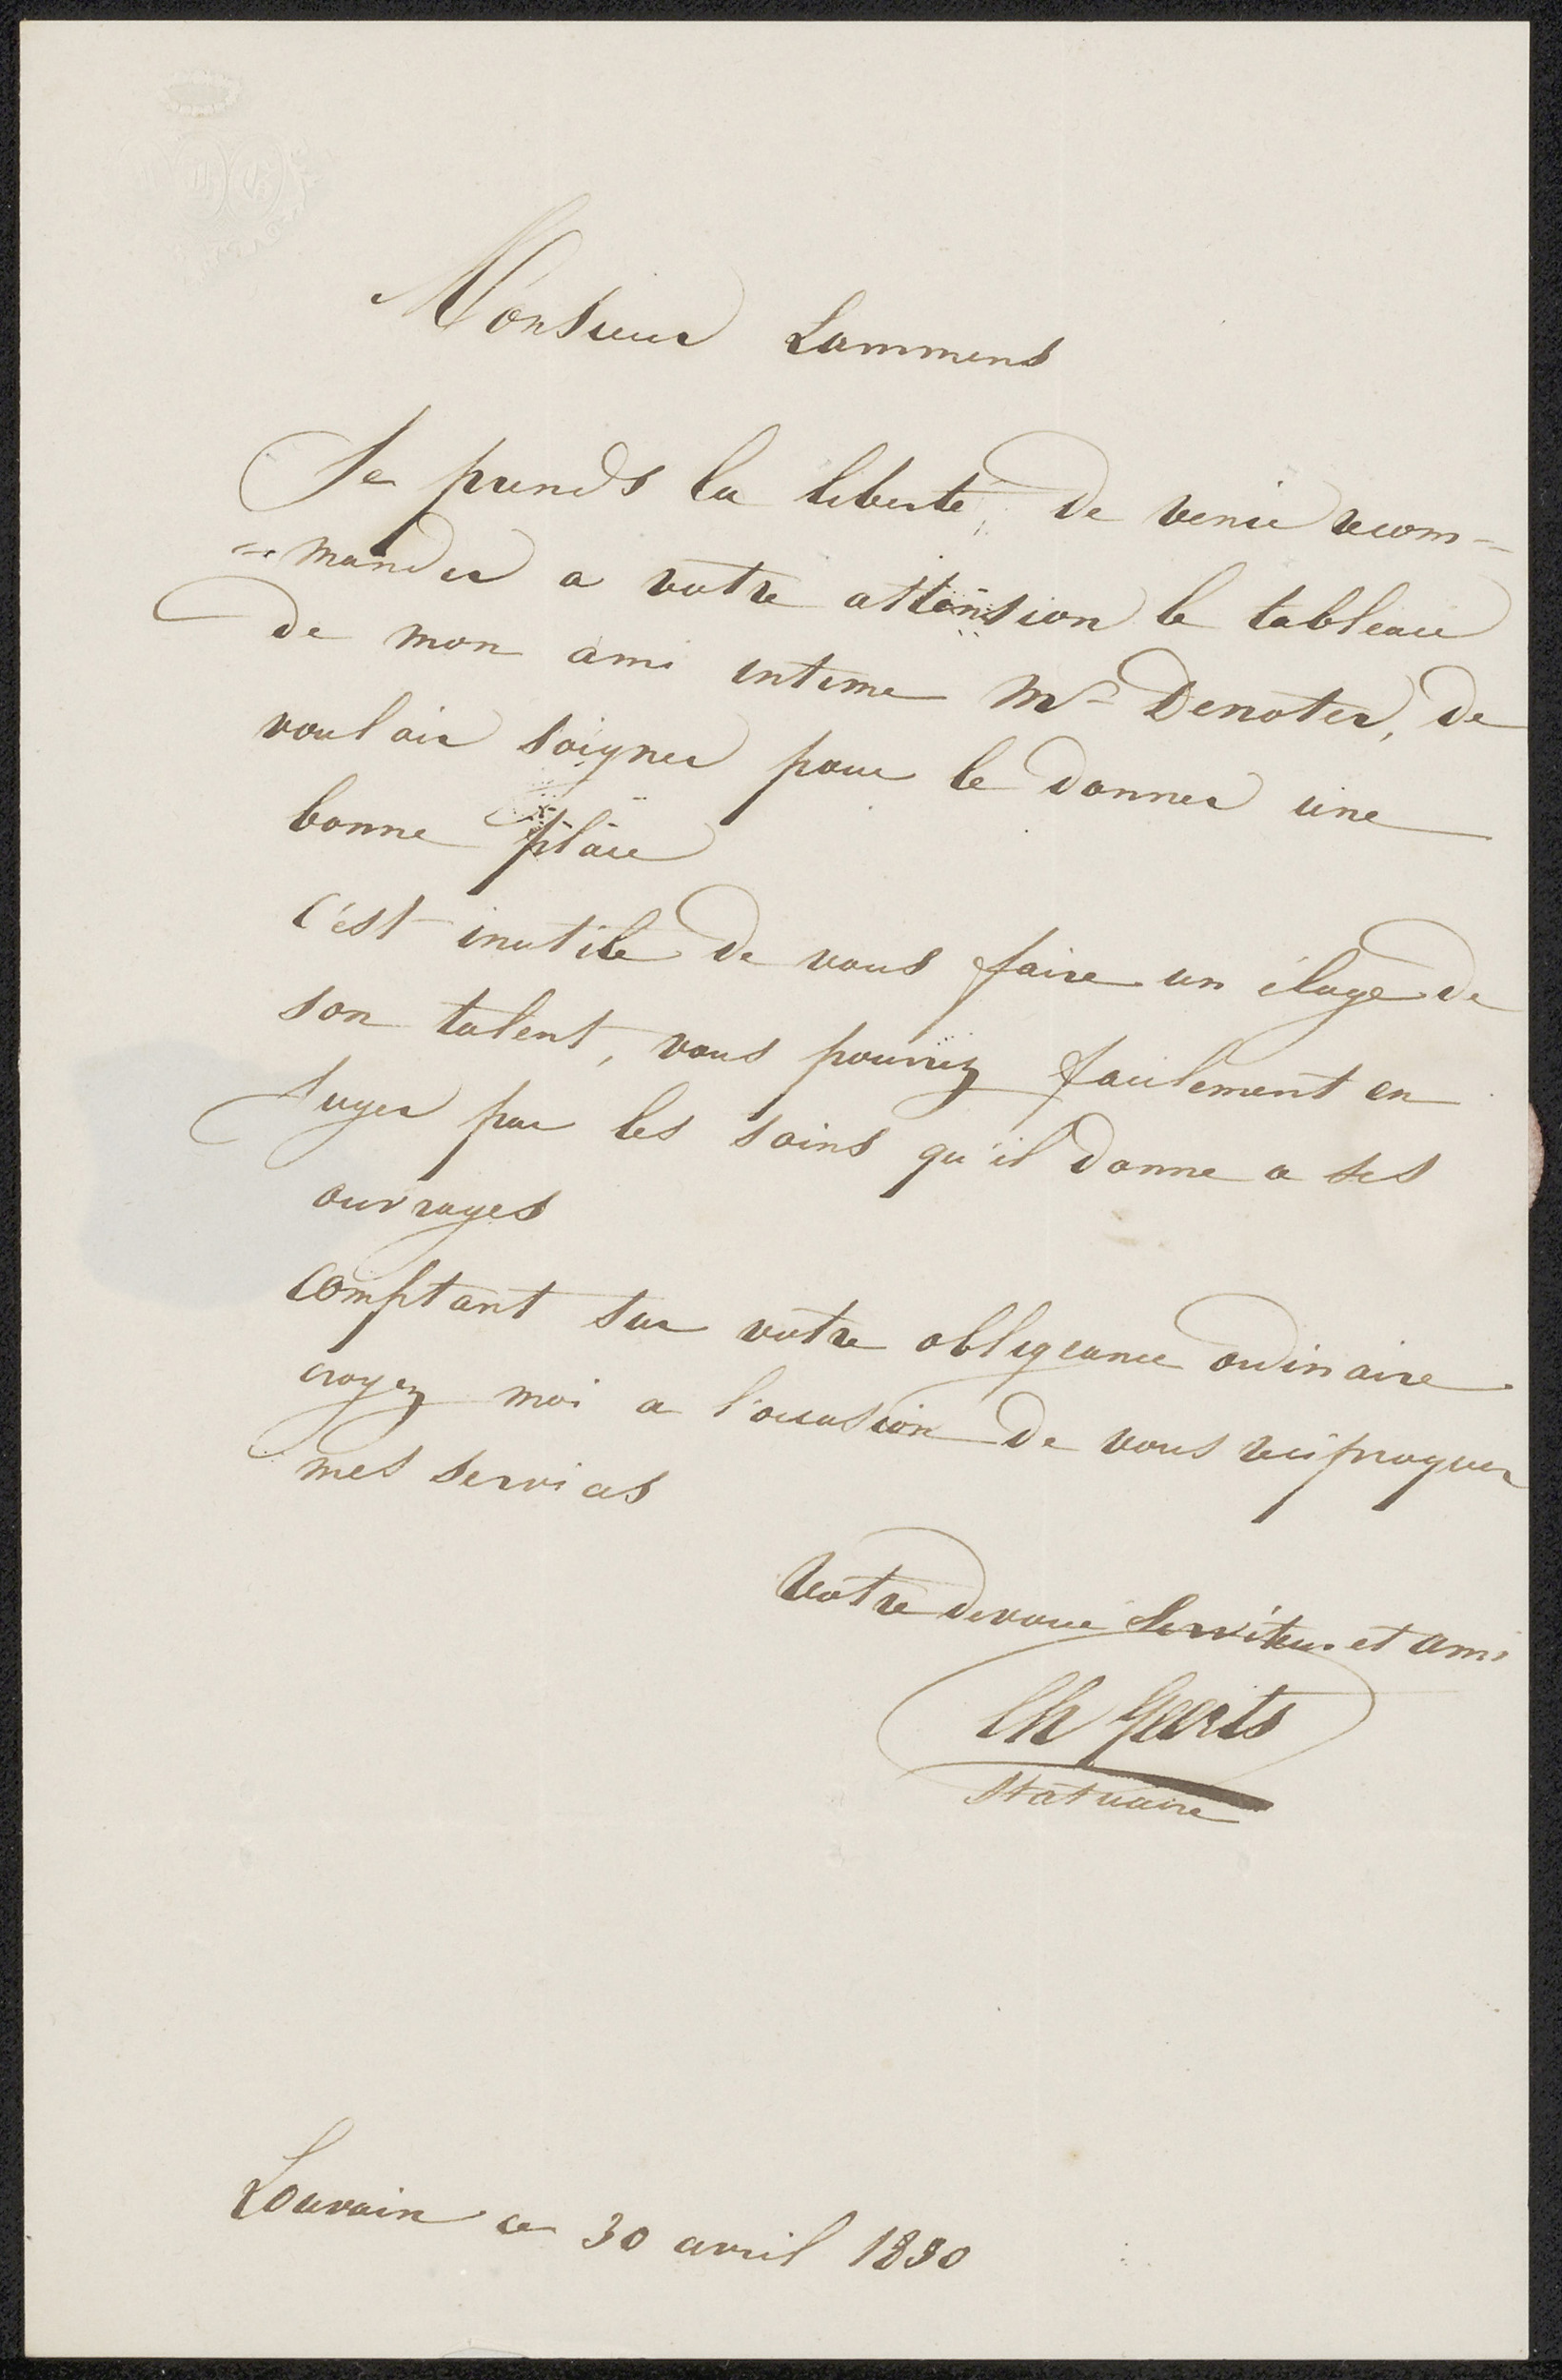 Monsieur Lammens
Je prends la liberté, de venir recom=
=mander a votre attension le tableau
de mon ami intime Mr Denoter, de
voulair soigner pour le donner une
bonne place
C'est inutile de vous faire un éloge de
son talent, vous pourriez facilement en
juger par les soins qu'il donne a ses
ouvrages
Comptant sur votre obligeance ordinaire
croyez moi a l'occasion de vous reciproquer
mes services
Votre devoué Serviteur et ami
Ch Geerts
Statuaire
Louvain ce 30 avril 1830